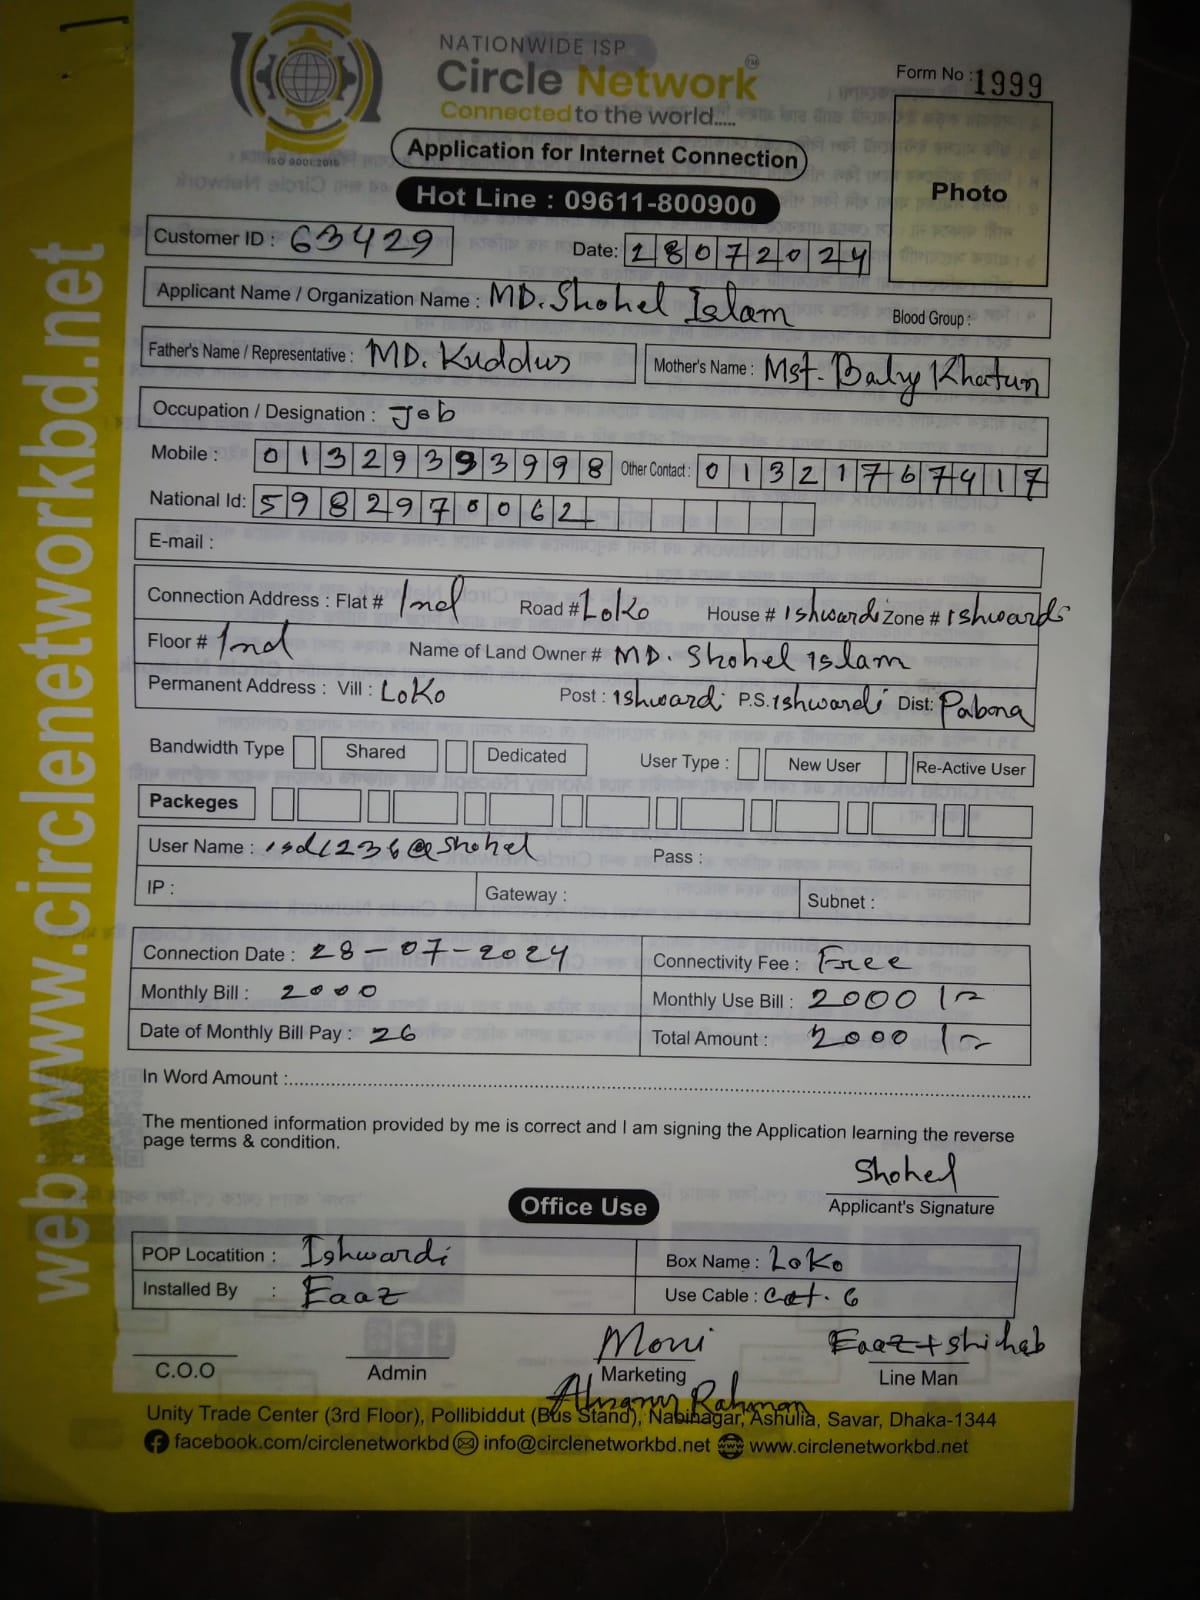 NATIONWIDE ISP
Circle Network™
Connected to the world.....
ISO 9001:2015
Form No : 1999
Application for Internet Connection
Hot Line : 09611-800900
Photo
Customer ID : 63429
Date: 28072024
Applicant Name / Organization Name : MD. Shohel Islam
Blood Group :
Father's Name / Representative : MD. Kuddus
Mother's Name : Mst. Baby Khatun
Occupation / Designation : Job
Mobile : 01329393998
Other Contact : 01321767417
National Id: 5982970062
E-mail :
Connection Address : Flat # 1nd Road # LoKo House # ishwardi Zone # ishwardi
Floor # 1nd Name of Land Owner # MD. Shohel islam
Permanent Address : Vill : LoKo Post : ishwardi P.S. ishwardi Dist: Pabona
Bandwidth Type Shared Dedicated User Type : New User Re-Active User
Packeges
User Name : isd1236@shohel Pass :
IP : Gateway : Subnet :
Connection Date : 28-07-2024 Connectivity Fee : Free
Monthly Bill : 2000 Monthly Use Bill : 2000/=
Date of Monthly Bill Pay : 26 Total Amount : 2000/=
In Word Amount :
The mentioned information provided by me is correct and I am signing the Application learning the reverse
page terms & condition.
Shohel
Applicant's Signature
Office Use
POP Locatition : Ishwardi Box Name : LoKo
Installed By : Eaaz Use Cable : cat. 6
Moni Eaaz+Shihab
C.O.O Admin Marketing Line Man
Rahman
Unity Trade Center (3rd Floor), Pollibiddut (Bus Stand), Nabinagar, Ashulia, Savar, Dhaka-1344
facebook.com/circlenetworkbd info@circlenetworkbd.net www.circlenetworkbd.net
web: www.circlenetworkbd.net